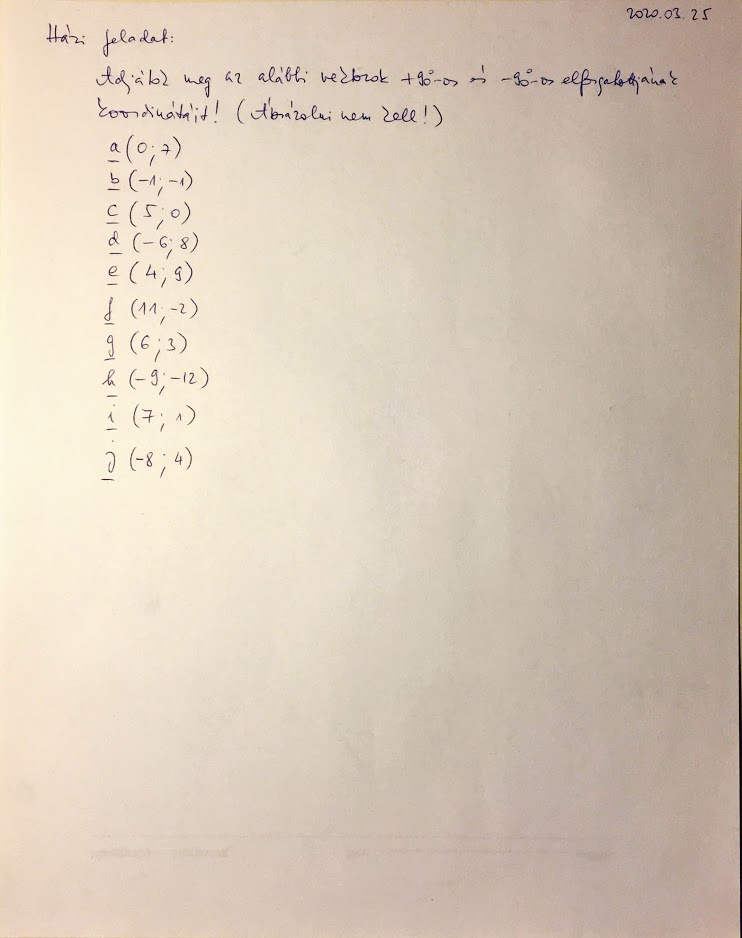 2020.03.25
Házi feladat:
Adjátok meg az alábbi vektorok +90°-os és -90°-os elforgatottjának
koordinátáit! (Ábrázolni nem kell!)
a (0;7)
b (-1;-1)
c (5;0)
d (-6;8)
e (4;9)
f (11;-2)
g (6;3)
h (-9;-12)
i (7;1)
j (-8;4)